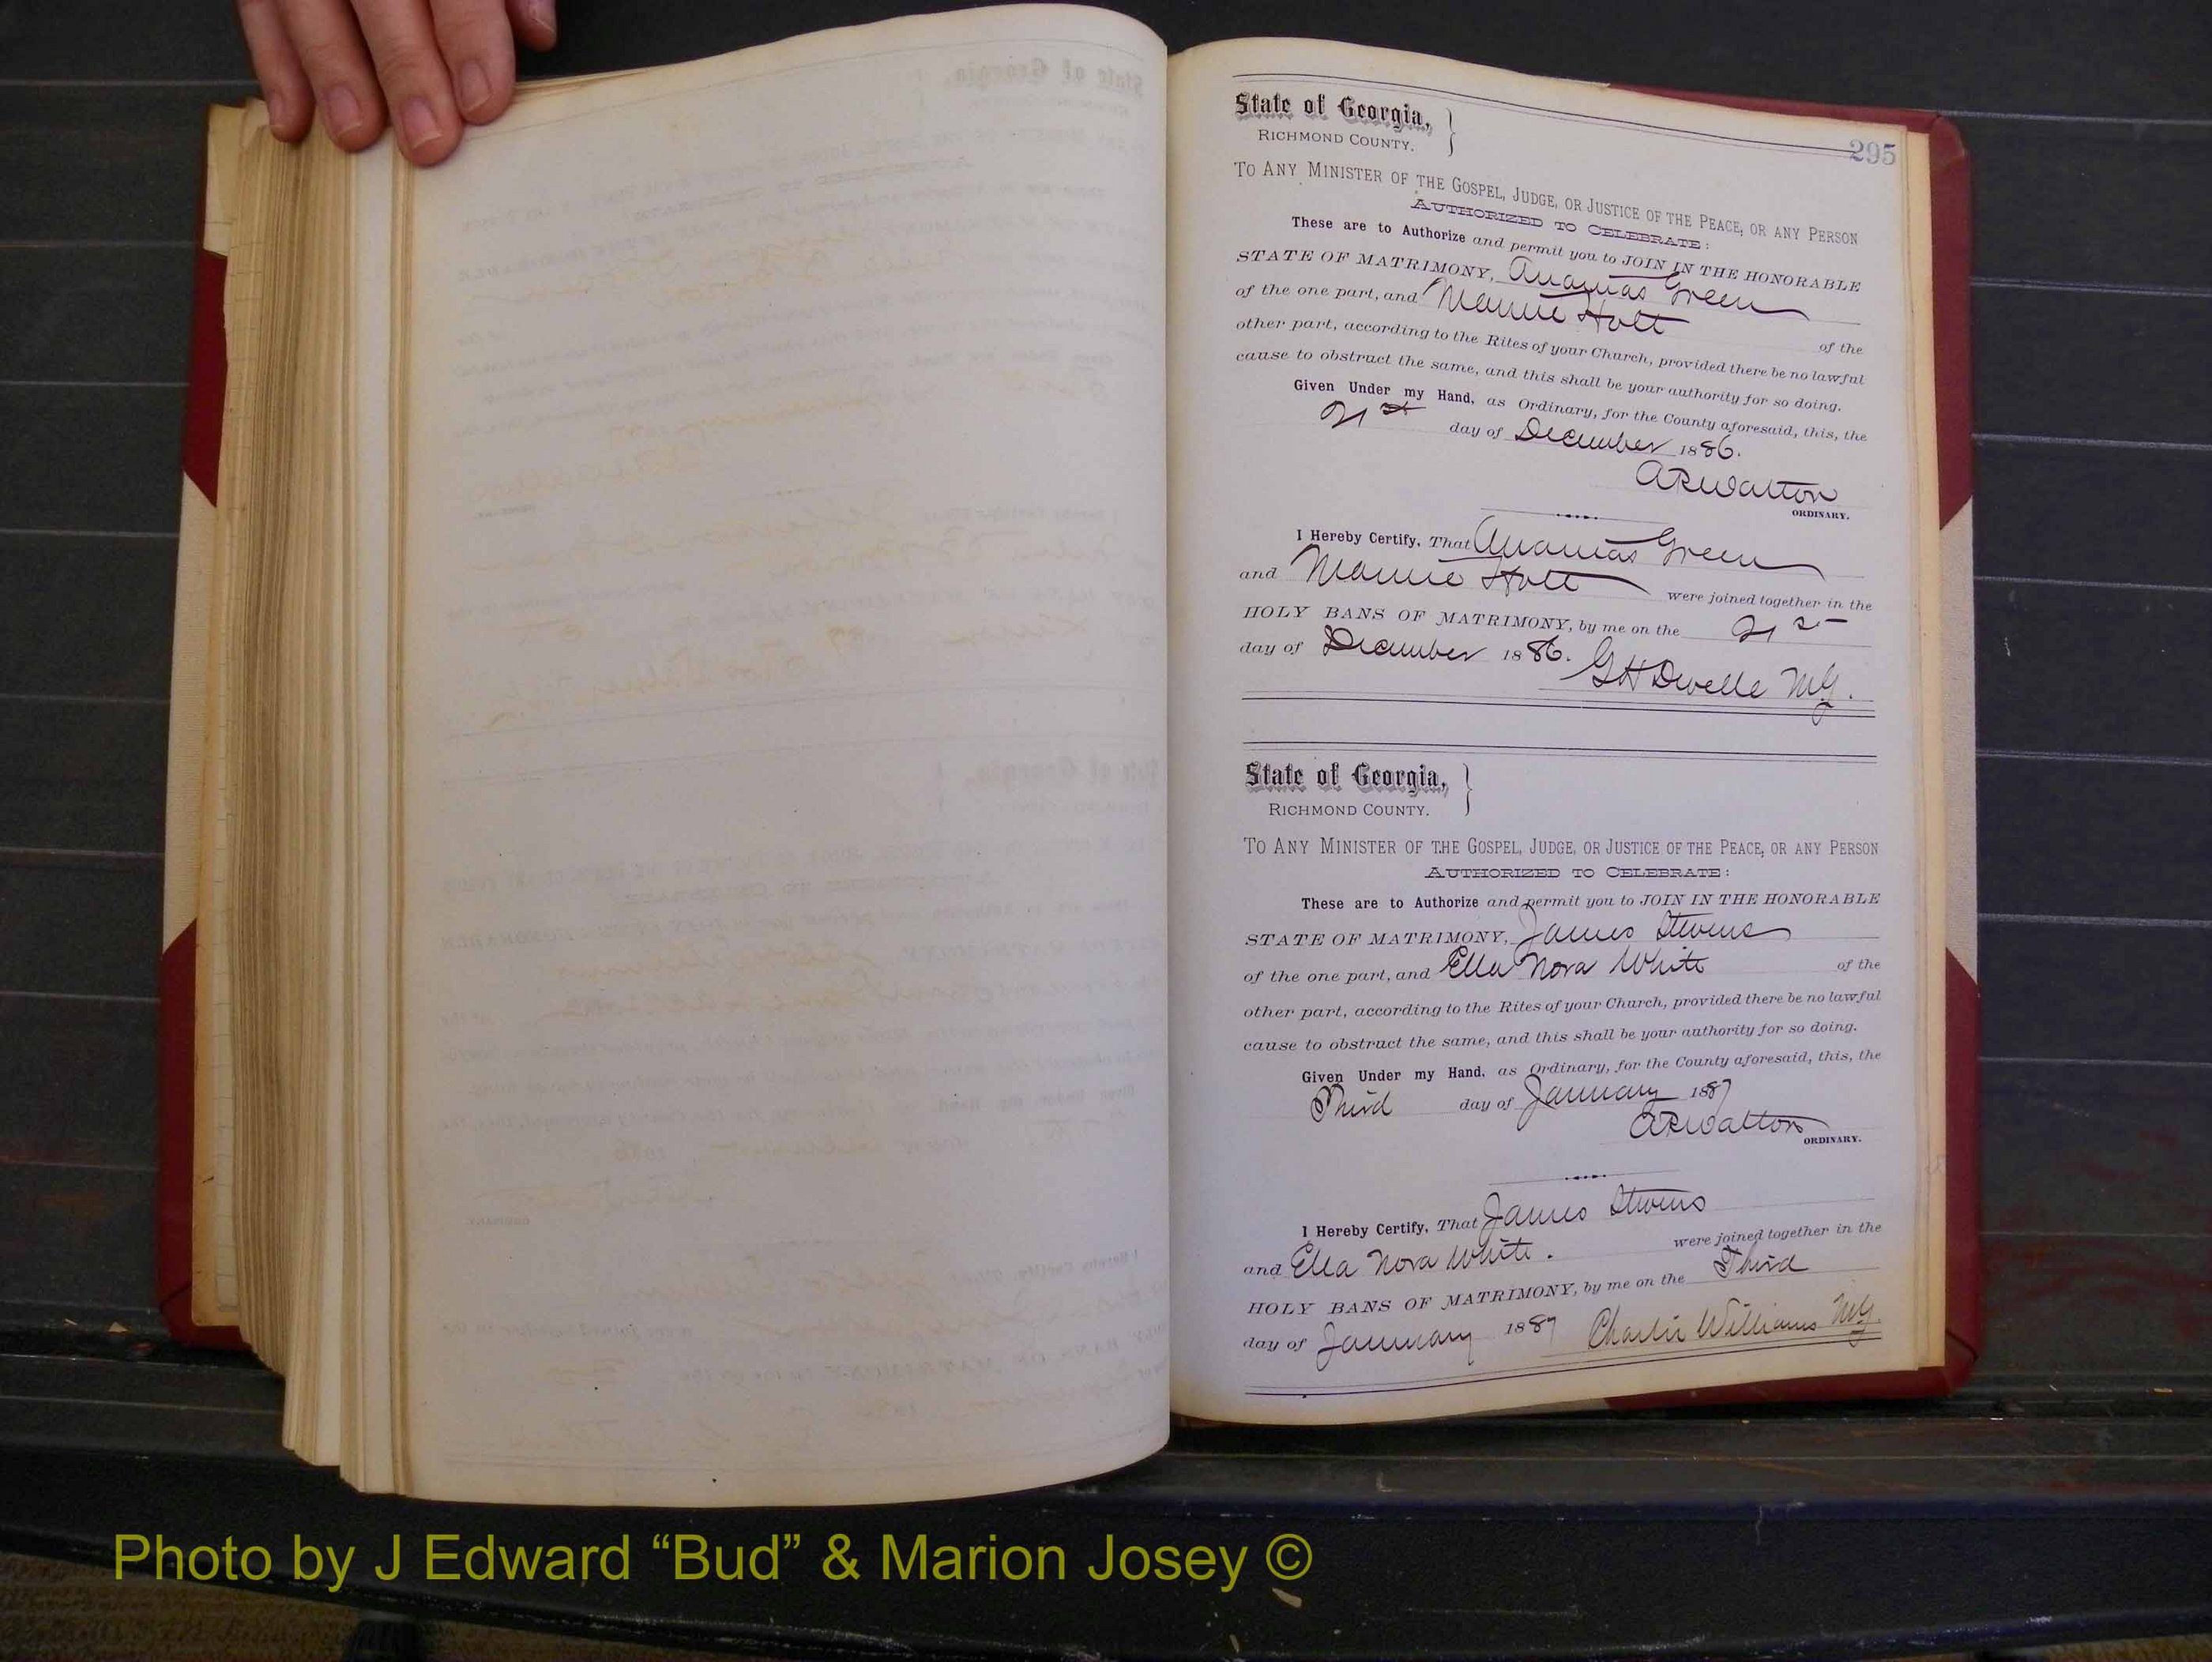 295
State of Georgia,
RICHMOND COUNTY.
TO ANY MINISTER OF THE GOSPEL, JUDGE, OR JUSTICE OF THE PEACE, OR ANY PERSON
AUTHORIZED TO CELEBRATE:
These are to Authorize and permit you to JOIN IN THE HONORABLE
STATE OF MATRIMONY, Ananias Green
of the one part, and Mamie Holt
of the
other part, according to the Rites of your Church, provided there be no lawful
cause to obstruct the same, and this shall be your authority for so doing.
Given Under my Hand, as Ordinary, for the County aforesaid, this, the
21st day of December 1886.
ARWalton
ORDINARY.
I Hereby Certify, That Ananias Green
and Mamie Holt were joined together in the
HOLY BANS OF MATRIMONY, by me on the 21st
day of December 1886. GH Dwelle MG.
State of Georgia,
RICHMOND COUNTY.
TO ANY MINISTER OF THE GOSPEL, JUDGE, OR JUSTICE OF THE PEACE, OR ANY PERSON
AUTHORIZED TO CELEBRATE:
These are to Authorize and permit you to JOIN IN THE HONORABLE
STATE OF MATRIMONY, James Stevens
of the one part, and Ella Nora White of the
other part, according to the Rites of your Church, provided there be no lawful
cause to obstruct the same, and this shall be your authority for so doing.
Given Under my Hand, as Ordinary, for the County aforesaid, this, the
Third day of January 1887
ARWalton
ORDINARY.
I Hereby Certify, That James Stevens
and Ella Nora White. were joined together in the
HOLY BANS OF MATRIMONY, by me on the Third
day of January 1887 Charlie Williams MG.
Photo by J Edward “Bud” & Marion Josey ©